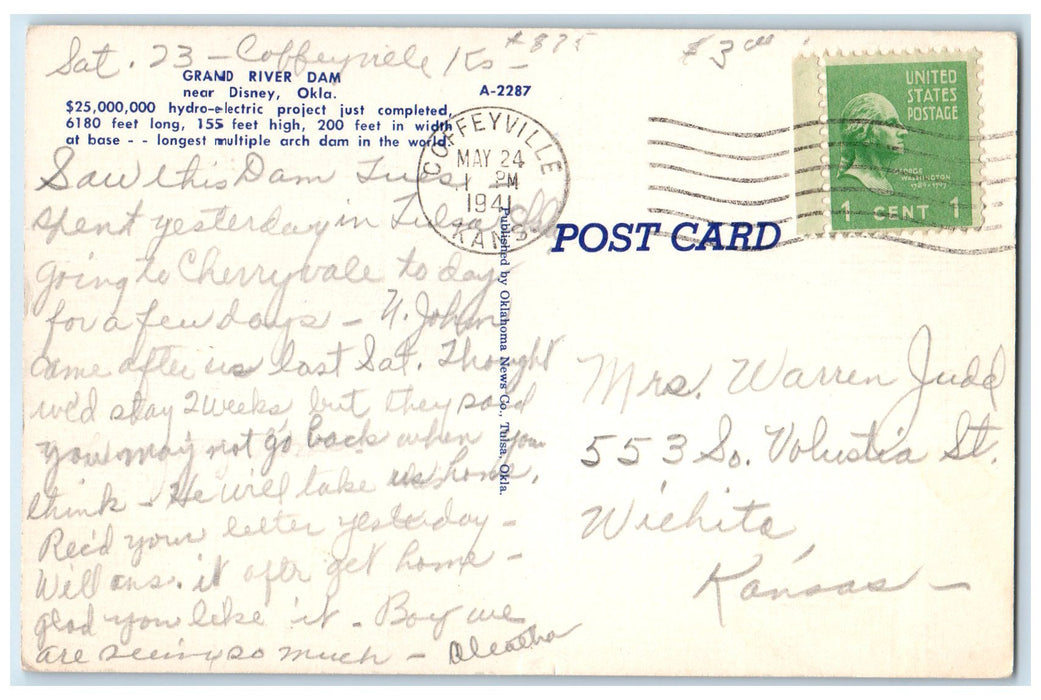 Sat. 23 – Coffeyville Ks –
#875
$3.00
GRAND RIVER DAM
near Disney, Okla.
A-2287
$25,000,000 hydro-electric project just completed,
6180 feet long, 155 feet high, 200 feet in width
at base - - longest multiple arch dam in the world.
Saw this Dam Tues.
spent yesterday in Tulsa Okla
going to Cherryvale to day
for a few days – U. John
came after us last Sat. Thought
we'd stay 2 weeks but they said
you may not go back when you
think – He will take us home.
Rec'd your letter yesterday –
Will ans. it after get home –
glad you like it – Boy we
are seeing so much –
COFFEYVILLE
MAY 24
1 PM
1941
KANS
Published by Oklahoma News Co., Tulsa, Okla.
POST CARD
UNITED
STATES
POSTAGE
GEORGE
WASHINGTON
1789-1797
1 CENT 1
Mrs. Warren Judd
553 So. Volustia St.
Wichita,
Kansas –